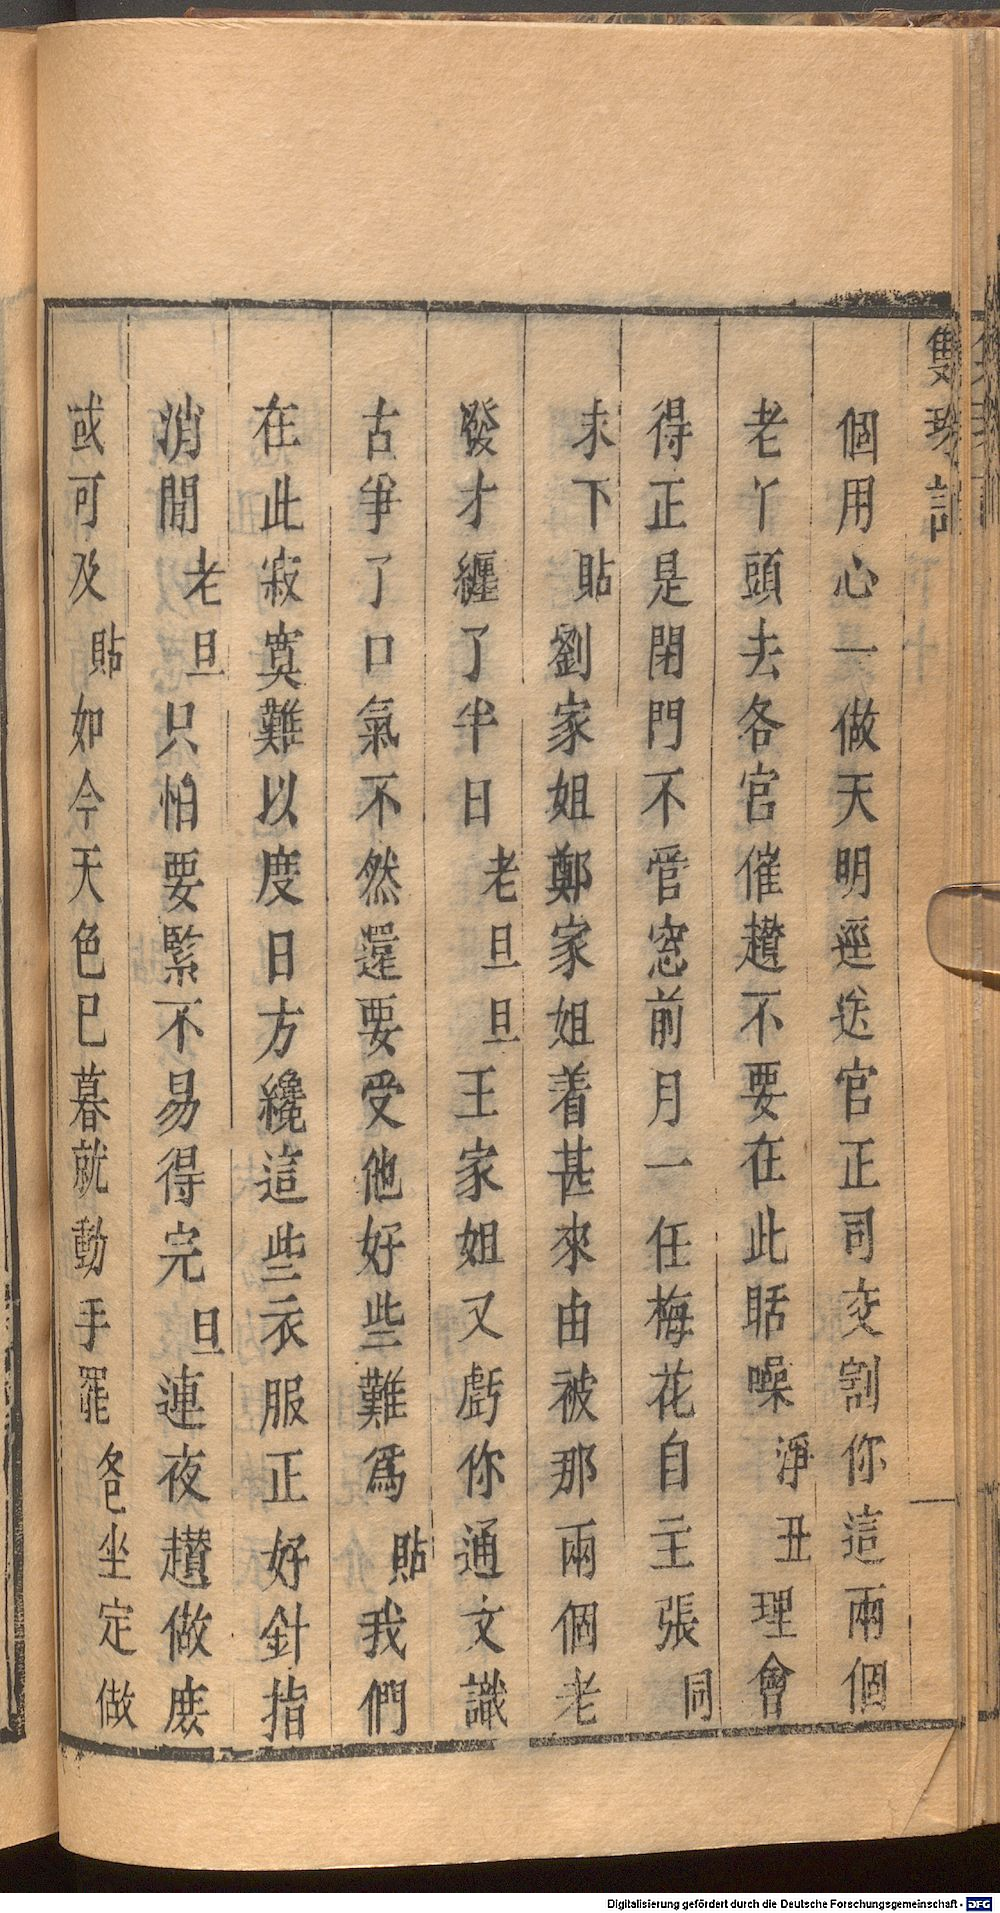 雙珠記
個用心一做天明逕送官正司交割你這兩個
老丫頭去各官催趲不要在此聒噪淨丑理會
得正是閉門不管窓前月一任梅花自主張同
末下貼劉家姐鄭家姐着甚來由被那兩個老
發才纏了半日老旦旦王家姐又虧你通文識
古爭了口氣不然還要受他好些難爲貼我們
在此寂寞難以度日方纔這些衣服正好針指
消閒老旦只怕要緊不易得完旦連夜趲做庻
或可及貼如今天色已暮就動手罷各坐定做
Digitalisierung gefördert durch die Deutsche Forschungsgemeinschaft - DFG